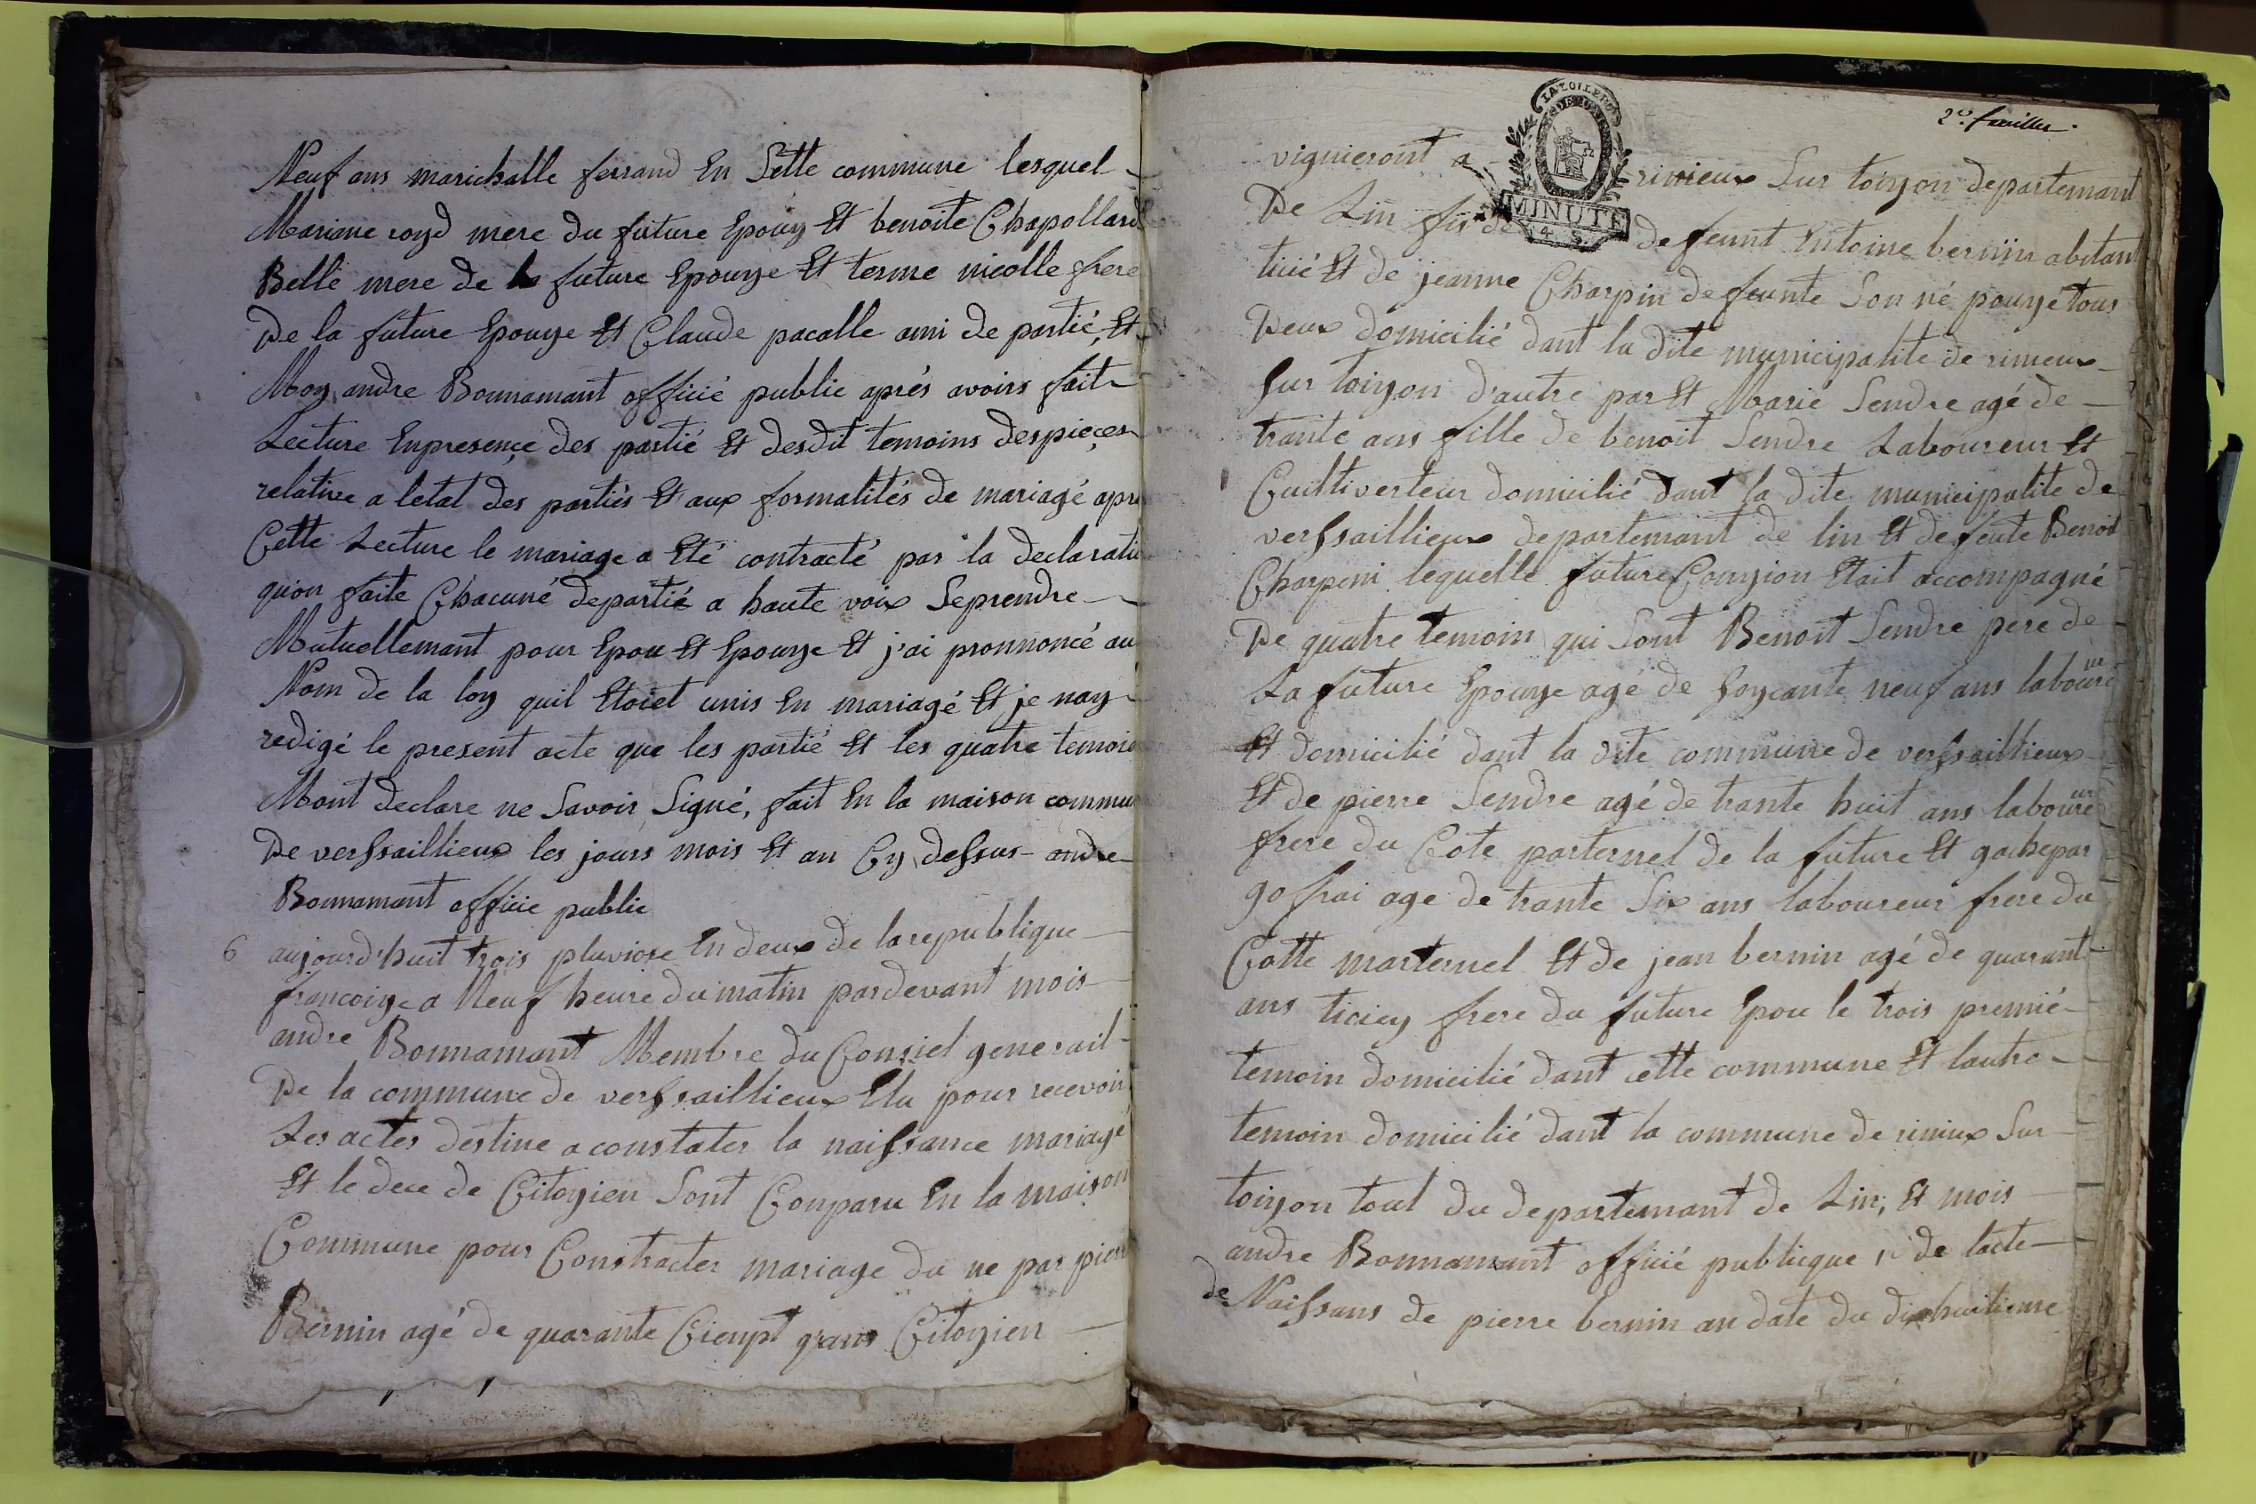 Neuf ans marichalle ferrand En Sette commune lesquel
Mariane royd mere du future Epouy Et benoite Chapolland
Belle mere de la future Epouye Et terme nicolle frere
De la future Epouye Et Claude pacalle ami de partié, Et
Moy andre Bonnamant officié public aprés avoirs fait
Lecture Enpresençe des partié Et desdit temoins despieçes
relative a letat des partiés Et aux formalités de mariagé apre
Cette Lecture le mariage a Eté contracté par la declaratio
quon faite Chacuné departié a haute voix Seprendre
Mutuellemant pour Epou Et Epouye Et j'ai pronnoncé au
Nom de la loy quil Etoiet unis En mariagé Et je nay
redigé le present acte que les partié Et les quatre temoin
Mont declare ne Savoir Signé, fait En la maison commun
De verssaillieux les jours mois Et an Cy dessus andre
Bonnamant officie public
6 aujourd'huit trois pluviose En deux de larepublique
francoiye a Neuf heure du matin pardevant mois
andre Bonnamant Membre du Consiel generail
De la commune de verssaillieux Elu pour recevoir
Les actes destine a constater la naissance mariagé
Et le dece de Citoyien Sont Conparu En la maison
Commune pour Constracter mariage du ne par pierre
Bernin agé de quarante Cienpt ans Citoyien
2e. feuillet
LA LOI LE ROI
vignieront a rinieux Sur toiyon departemant
De Lin fis de defeunt Entoine bernin abitant
MINUTE
4 S
ticié Et de jeanne Charpin defeunte Son né pouye tous
Deux domicilié dant la dite municipalite de rinieux
Sur toiyon d'autre par Et Marie Sendre agé de
trante ans fille de benoit Sendre Laboureur Et
Cuiltiverteur domicilié dant la dite municipalite de
verssaillieux departemant de lin Et defeute Benoit
Charpeni lequelle future Conyion Etait accompagné
De quatre temoin qui Sont Benoit Sendre pere de
La future Epouye agé de Soycante neuf ans laboureur
Et domicilié dant la dite commune de verssaillieux
Et de pierre Sendre agé de trante huit ans laboureur
frere du Cote parternel de la future Et gachepar
goffrai age de trante Six ans laboureur frere du
Cotte marternel Et de jean bernin agé de quarant
ans ticiey frere du future Epou le trois premié
temoin domicilié dant cette commune Et lautre
temoin domicilié dant la commune de riniux Sur
toiyon tout du departemant de Lin, Et mois
andre Bonnamant officié publicque, de lacte
de Naissans de pierre bernin an date du dixhuitieme